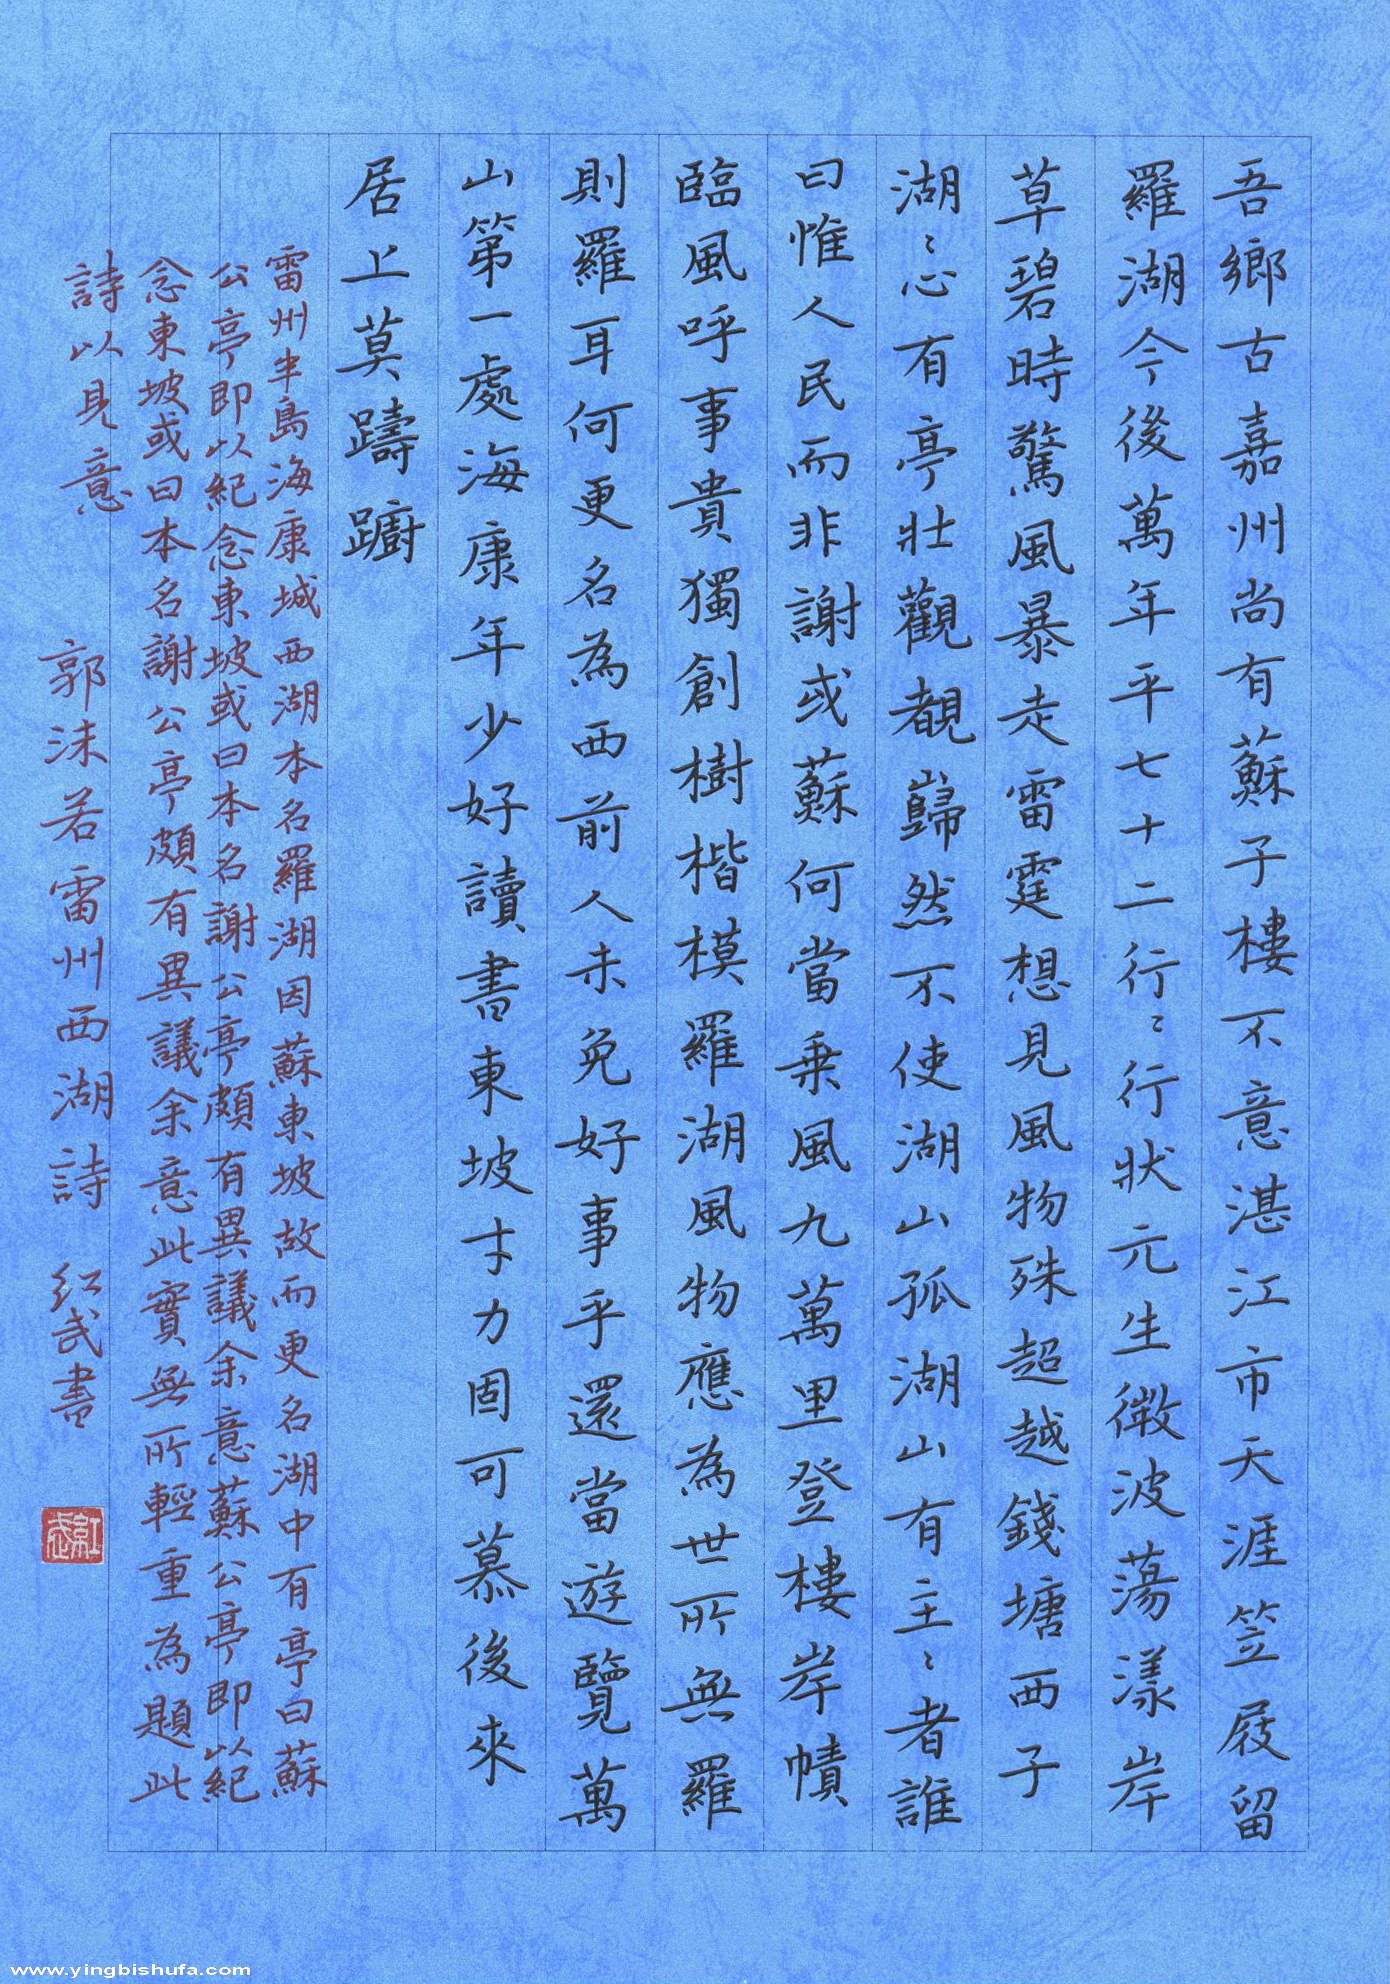 吾鄉古嘉州尚有蘇子樓不意湛江市天涯笠屐留
羅湖今後萬年平七十二行〻行狀元生微波蕩漾岸
草碧時驚風暴走雷霆想見風物殊超越錢塘西子
湖〻心有亭壯觀覩巋然不使湖山孤湖山有主〻者誰
曰惟人民而非謝或蘇何當乘風九萬里登樓岸幘
臨風呼事貴獨創樹楷模羅湖風物應為世所無羅
則羅耳何更名為西前人未免好事乎還當遊覽萬
山第一處海康年少好讀書東坡才力固可慕後來
居上莫躊躕
雷州半島海康城西湖本名羅湖因蘇東坡故而更名湖中有亭曰蘇
公亭即以紀念東坡或曰本名謝公亭頗有異議余意蘇公亭即以紀
念東坡或曰本名謝公亭頗有異議余意此實無所輕重為題此
詩以見意
郭沫若雷州西湖詩 紅武書
紅武
www.yingbishufa.com